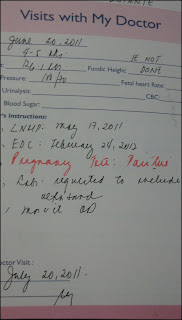 Visits with My Doctor
June 20, 2011
4-5 wks. IF NOT
126.1 lbs Fundic Height: DONE
Pressure: 110/70 Fetal Heart Rate:
Urinalysis: CBC:
Blood Sugar:
's Instructions:
LNMP: May 17, 2011
EDC: February 24, 2012
Pregnancy Test: Positive
Lab: requested to include
ultrasound
movit OD
Doctor Visit:
July 20, 2011.